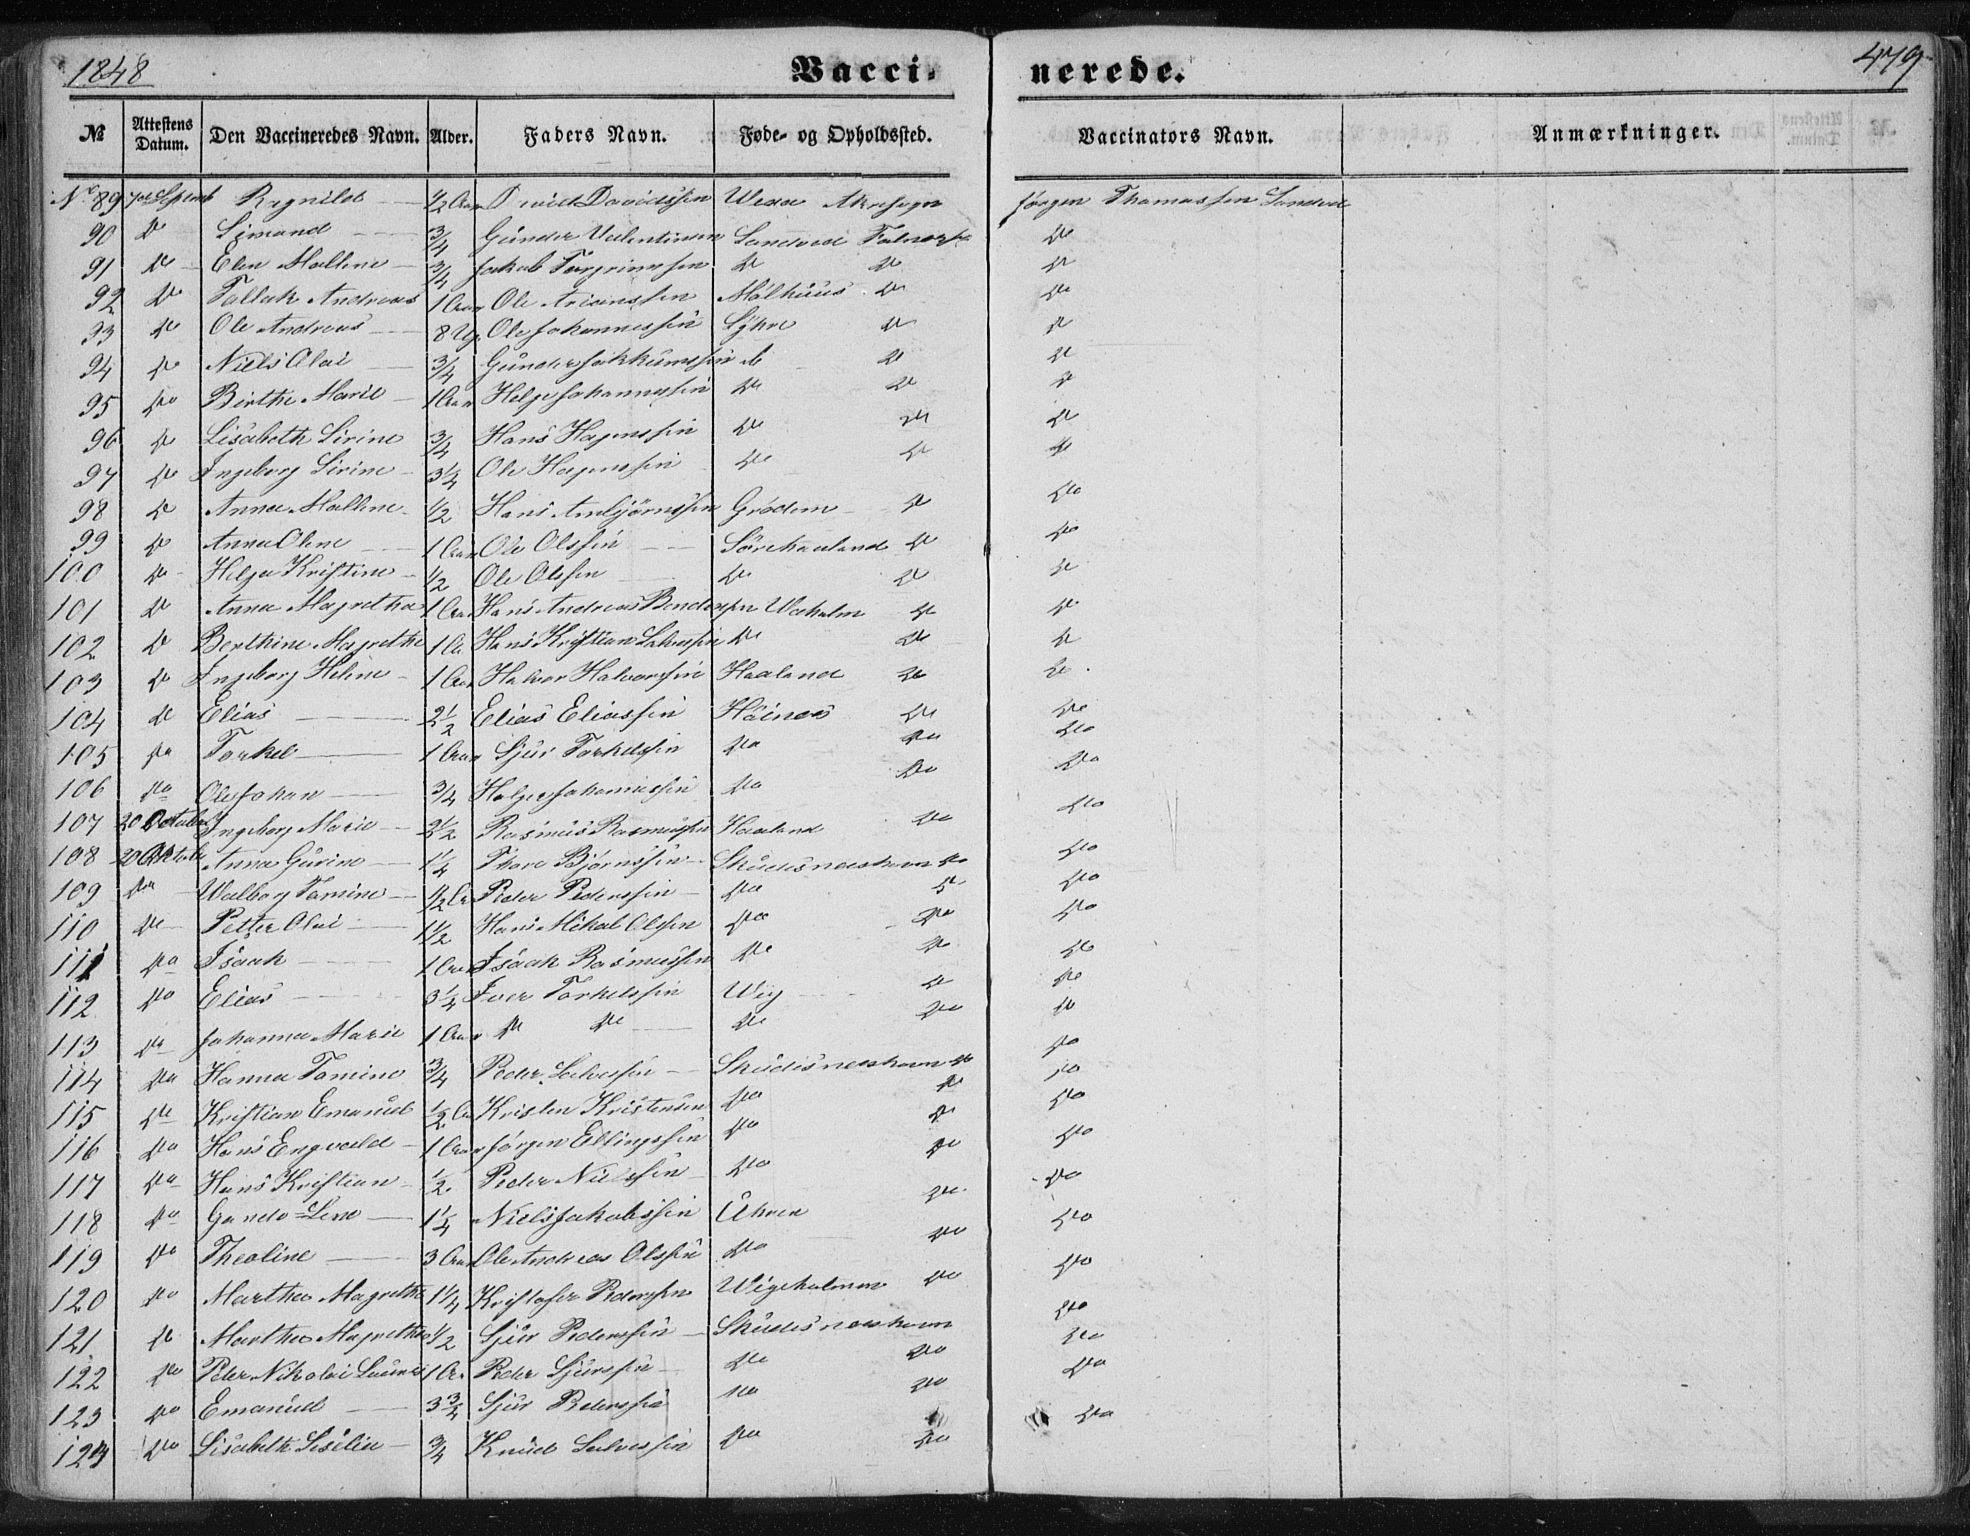 1848 Vacci- nerede. 479
№ Attestens Datum. Den Vaccineredes Navn. Alder. Faders Navn. Føde- og Opholdssted. Vaccinators Navn. Anmærkninger.
No 89 Septemb Ragnild ½ Aar David Davidssen Wera Akresogn Jørgen Thomassen Sandved
90 do Simand ¾ Gunder Valentinsen Sandved do
91 do Elen Malline ¾ Jakob Torgrimssen do do do
92 do Tallak Andreas 1 Aar Ole Mølhuus do do
93 do Ole Andreas 8 Ug Ole Johannessen Syhre do do
94 do Niels Olai ¾ Gunder do do do
95 do Birthe Marie 1 Aar Helge Johannessen do do do
96 do Lisabeth Sirine ¾ Hans Hagenssen do do do
97 do Ingeborg Sirine 3¼ Ole Hagenssen do do do
98 do Anna Malline ½ Hans Anbjørnssen Grødem do do
99 do Anna Oline 1 Aar Ole Olssen Sørehaaland do do
100 do Helga Kristine ½ Ole Olssen do do do
101 do Anna Magretha 1 Aar Hans Andreas Wakolm do do
102 do Berthine Magrethe 1 Hans Kristian do do do
103 do Ingeborg Heline 1 Aar Halvor Halvorssen Haaland do do
104 do Elias 2½ Elias Eliassen Høines do do
105 do Torkel 1 Aar Sjur Torkelssen do do do
106 do Ole Johan ¾ Holger Johannessen do do do
107 20 October Ingeborg Marie 2½ Rasmus Rasmussen Haaland do do
108 20 Oktob Anna Gurine 1¼ Thore Bjørnssen Skudesneshavn do do
109 do Walborg Tomine ½ Peder Pederssen do do do
110 do Petter Olai 1½ Hans Mikal Olssen do do do
111 do Isaak 1 Aar Isaak Rasmussen do do do
112 do Elias 3¼ Iver Torkelssen Wig do do
113 do Johanna Marie 1 Aar do do do do do
114 do Hanna Tomine ¾ Peder Salvessen Skudesneshavn do do
115 do Kristian Emanuel ½ Kristen Kristensen do do do
116 do Hans Engvald 1 Aar Jørgen Ellingssen do do do
117 do Hans Kristian ½ Peder Nielssen do do do
118 do Lene 1¼ Niels Jakobssen do do
119 do Theoline 3 Aar Ole Andreas Olssen do do do
120 do Martha Magretha 1¼ Kristofer Pederssen Wigeholmen do do
121 do Martha Magretha ½ Sjur Pederssen Skudesneshavn do
122 do Peder Nikolai 1 Peder Sjurssen do do do
123 do Emanuel 3¾ Sjur Pederssen do do do
124 do Lisabeth Siselie ¾ Knud Salvessen do do